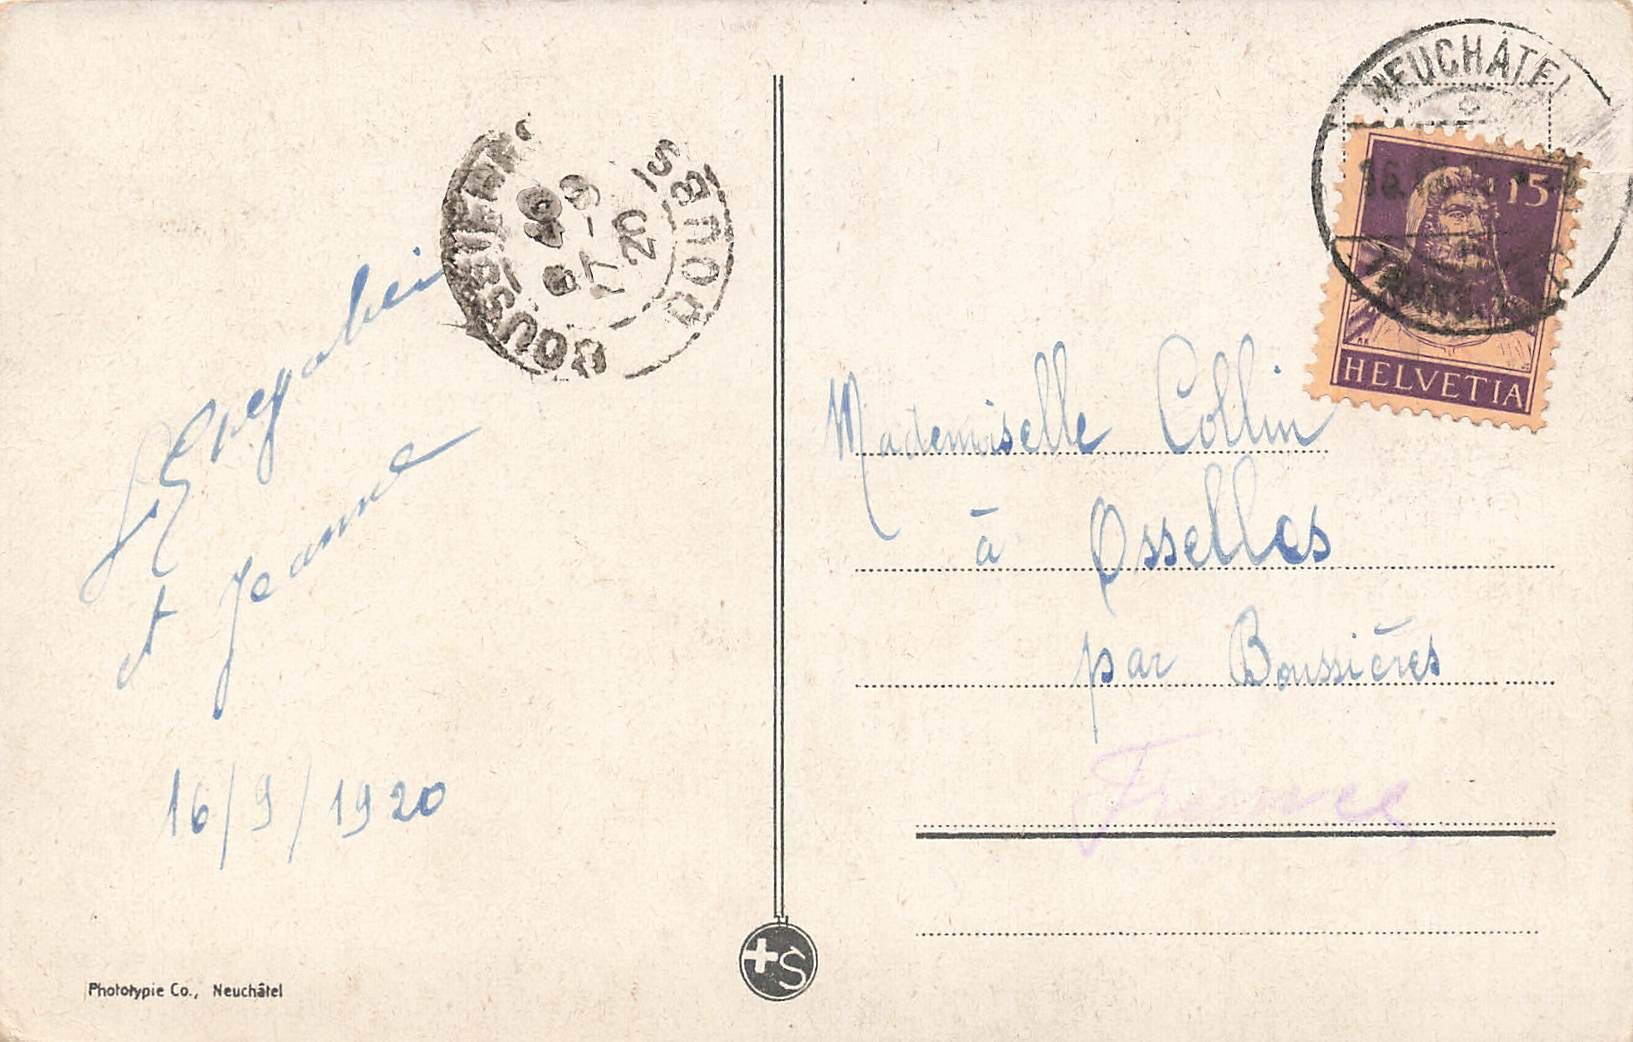 et Jeanne
16/9/1920
Phototypie Co., Neuchâtel
BOUSSIERES
DOUBS
8 40
17 - 9
20
+S
NEUCHÂTEL
16.
15
HELVETIA
Mademoiselle Collin
à Osselles
par Boussières
France